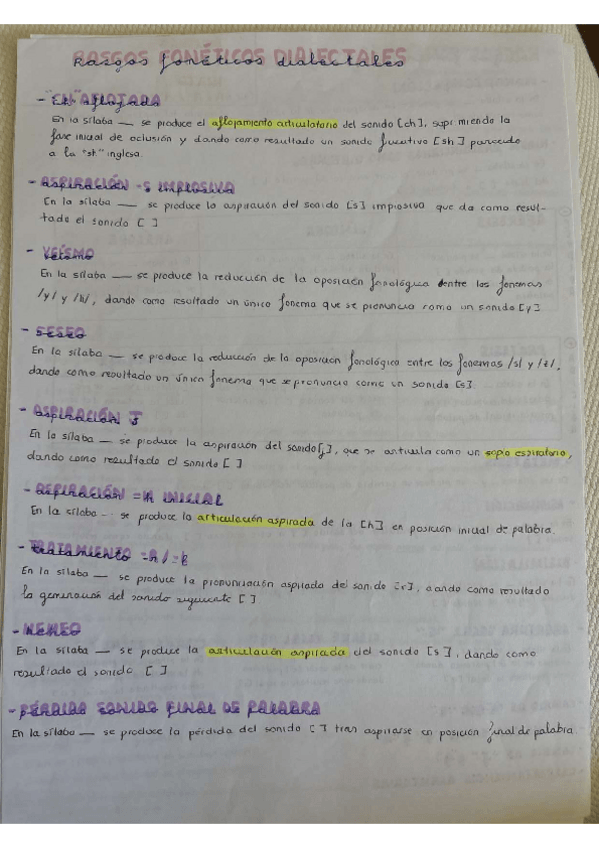 Rasgos fonéticos dialectales
- "CH" AFLOJADA
En la sílaba — se produce el aflojamiento articulatorio del sonido [ch], suprimiendo la
fase inicial de oclusión y dando como resultado un sonido fricativo [sh] parecido
a la "sh" inglesa.
- ASPIRACIÓN -S IMPLOSIVA
En la sílaba — se produce la aspiración del sonido [s] implosivo que da como resul-
tado el sonido [ ]
- YEÍSMO
En la sílaba — se produce la reducción de la oposición fonológica dentre los fonemas
/y/ y /ll/, dando como resultado un único fonema que se pronuncia como un sonido [y]
- SESEO
En la sílaba — se produce la reducción de la oposición fonológica entre los fonemas /s/ y /z/,
dando como resultado un único fonema que se pronuncia como un sonido [s].
- ASPIRACIÓN J
En la sílaba — se produce la aspiración del sonido [j], que se articula como un soplo espiratorio,
dando como resultado el sonido [ ]
- ASPIRACIÓN =H INICIAL
En la sílaba -- se produce la articulación aspirada de la [h] en posición inicial de palabra.
- TRATAMIENTO =R / =L
En la sílaba — se produce la pronunciación aspirada del sonido [r], dando como resultado
la geminación del sonido siguiente [ ].
- HEHEO
En la sílaba — se produce la articulación aspirada del sonido [s], dando como
resultado el sonido [ ]
- PÉRDIDA SONIDO FINAL DE PALABRA
En la sílaba — se produce la pérdida del sonido [ ] tras aspirarse en posición final de palabra.